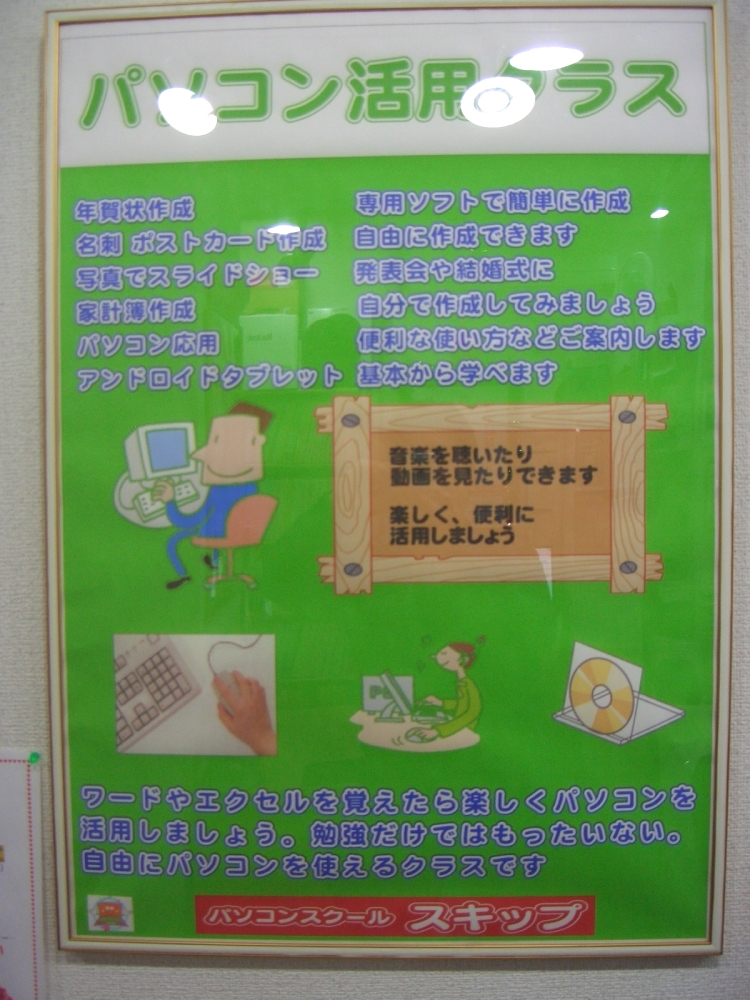 パソコン活用クラス
年賀状作成 専用ソフトで簡単に作成
名刺 ポストカード作成 自由に作成できます
写真でスライドショー 発表会や結婚式に
家計簿作成 自分で作成してみましょう
パソコン応用 便利な使い方などご案内します
アンドロイドタブレット 基本から学べます
音楽を聴いたり
動画を見たりできます
楽しく、便利に
活用しましょう
ワードやエクセルを覚えたら楽しくパソコンを
活用しましょう。勉強だけではもったいない。
自由にパソコンを使えるクラスです
パソコンスクール スキップ